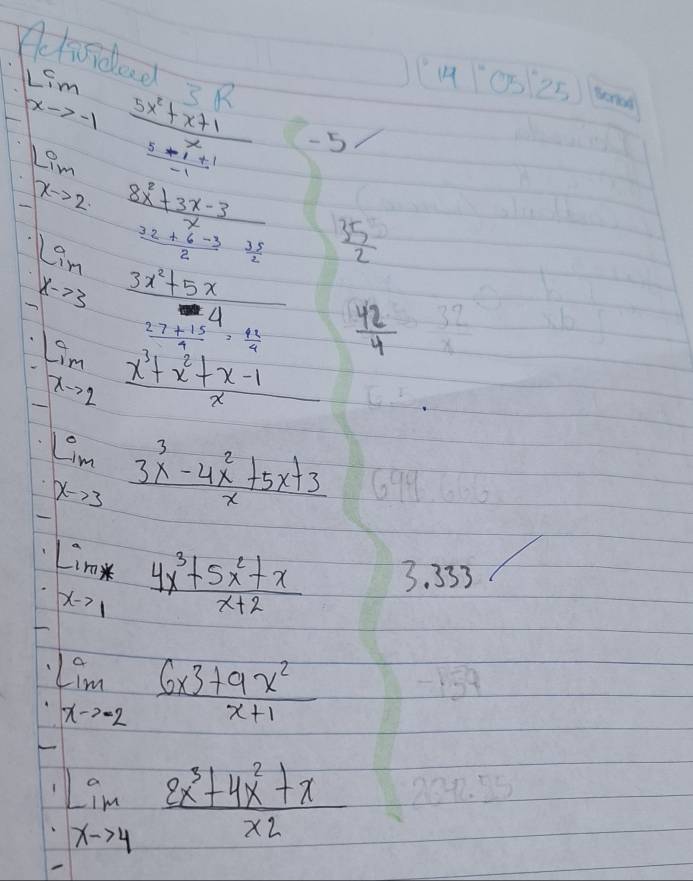 Actividad 3R
14 05 25
Lim x->-1 5x²+x+1 / x -5
5 + 1 + 1 / -1
Lim x->2 8x²+3x-3 / x 35/2
32 + 6 - 3 / 2 35/2
Lim x->3 3x²+5x / 4 42/4
27 + 15 / 4 = 42/4
Lim x->2 x³+x²+x-1 / x
Lim x->3 3x³-4x²+5x+3 / x
Lim x->1 4x³+5x²+x / x+2 3.333
Lim x->-2 6x3+9x² / x+1
Lim x->4 8x³+4x²+x / x2